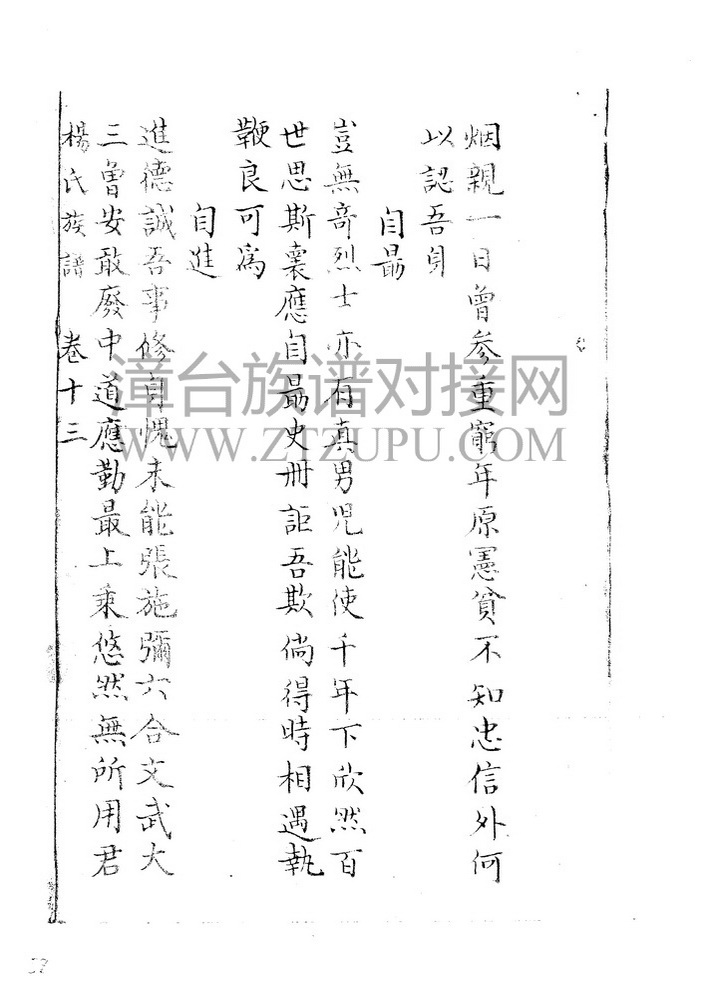 烟親一日曾參重窮年原憲貧不知忠信外何
以認吾身
自勗
豈無奇烈士亦有真男児能使千年下欣然百
世思斯褱應自勗史冊詎吾欺倘得時相遇執
鞭良可為
自進
進德誠吾事修身愧未能張施彌六合文武大
三曾安敢廢中道應勤最上乘悠然無所用君
楊氏族譜 卷十三
漳台族谱对接网
WWW.ZTZUPU.COM